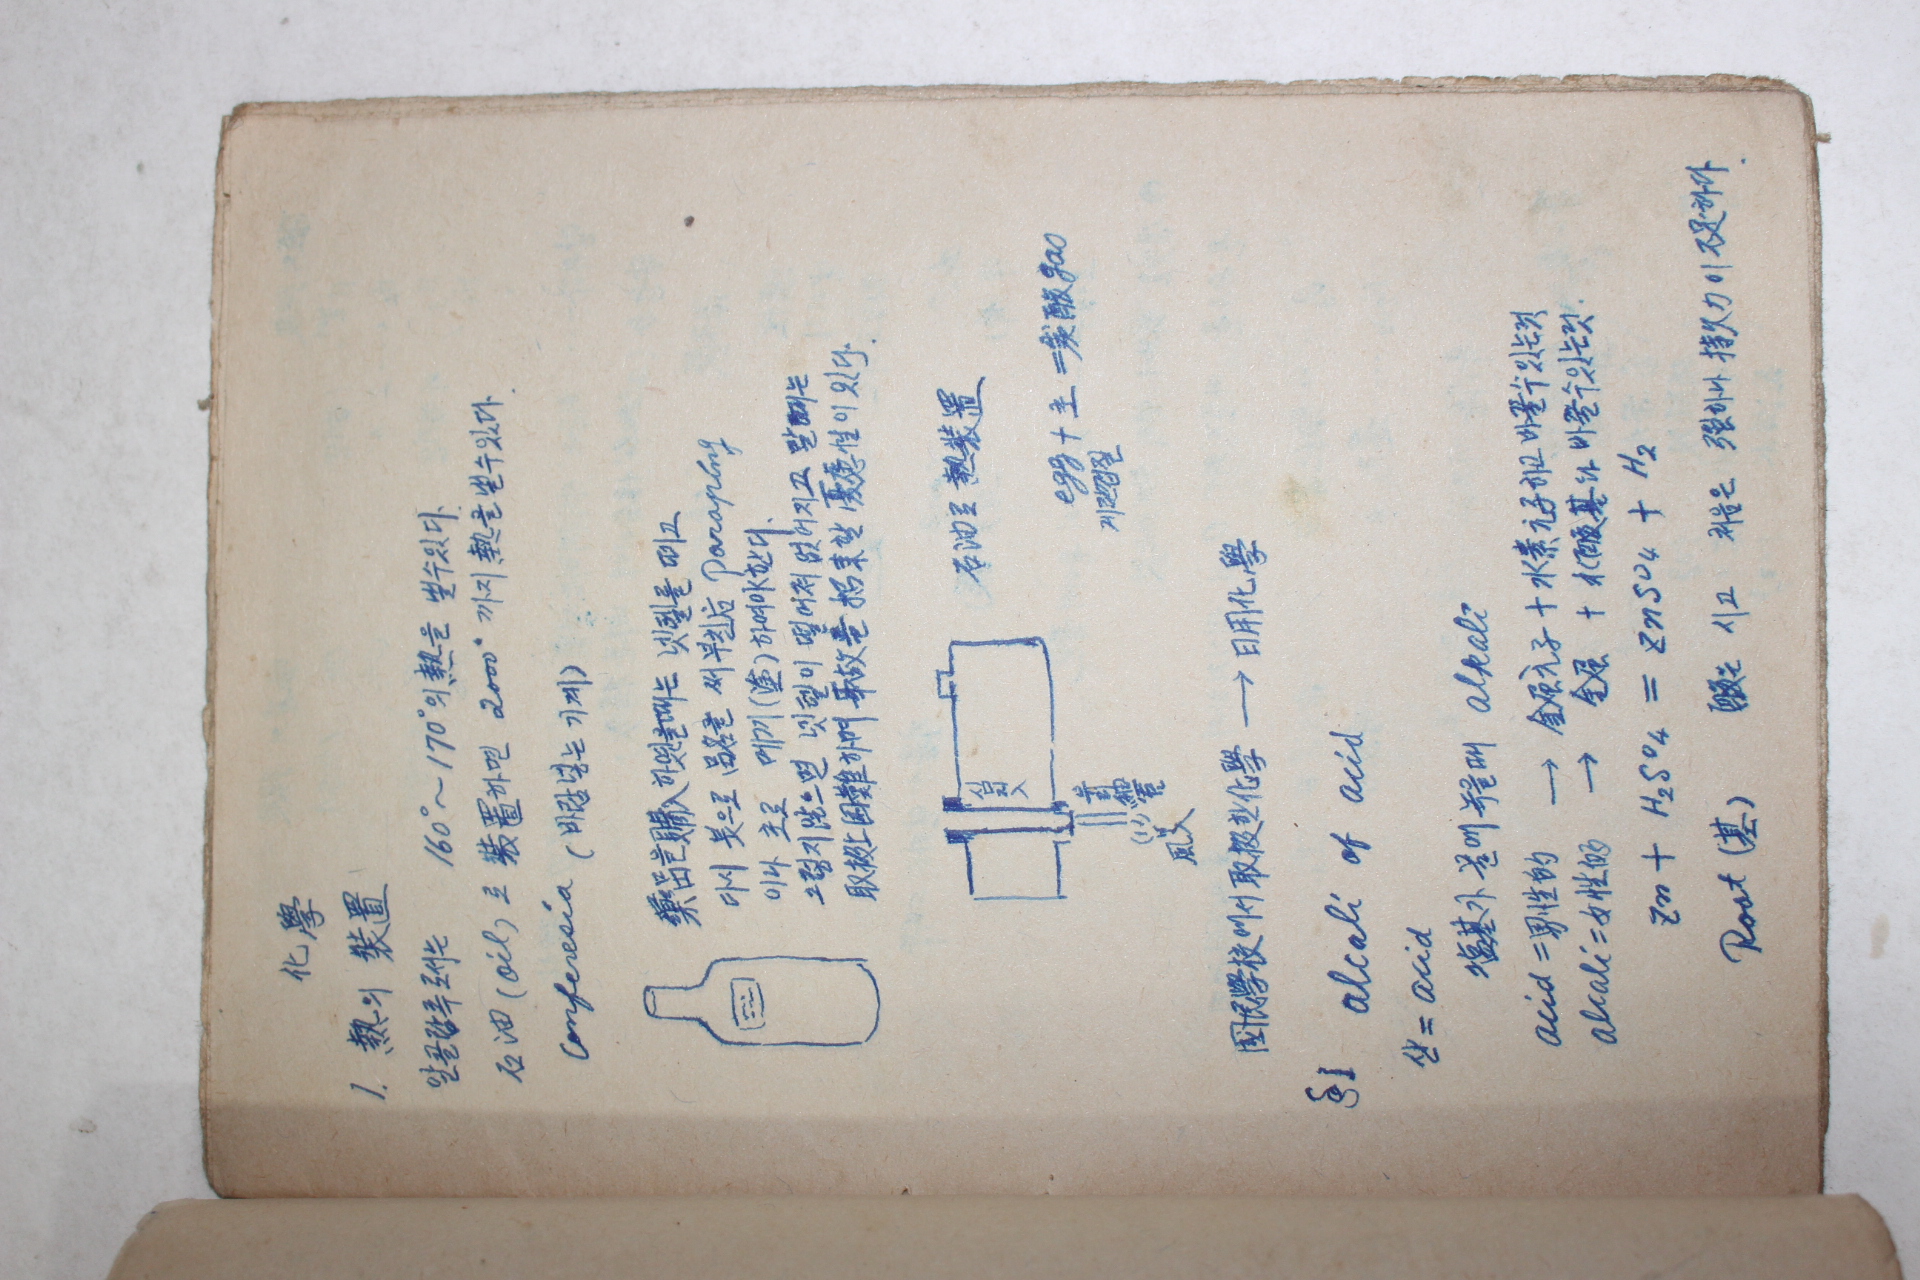 化學
1. 熱의 裝置
알콜람푸로서는 160°~170°의 熱을 낼수있다.
石油(oil)로 裝置하면 2000°까지 熱을 낼수있다.
Comferesia (바람넣는 기계)
藥品을 購入하였을때는 넷텔을 띠고
다시 붓으로 品名을 써부친后 Paraping
이나 초로 메기(塗)하여야한다.
그렇지않으면 넷텔이 떨어저 없어지고 말때는
取扱上困難하며 事故를 招来할 憂慮성이 있다.
石油로 熱裝置
심지
細管
風入
egg + 초 = 炭酸gas
계란껍질
国民學校에서 取扱할 化學 → 日用化學
§1 alcali of acid
산 = acid
塩基가 물에 녹을때 alkali
acid = 男性的 → 金属元子 + 水素元子하고 바꿀수있는것
alcali = 女性的 → 金屬 + 水酸基와 바꿀수있는것.
Zn + H₂SO₄ = ZnSO₄ + H₂
Root (基) 酸은 시고 처음은 强하나 持久力이 不足하다.